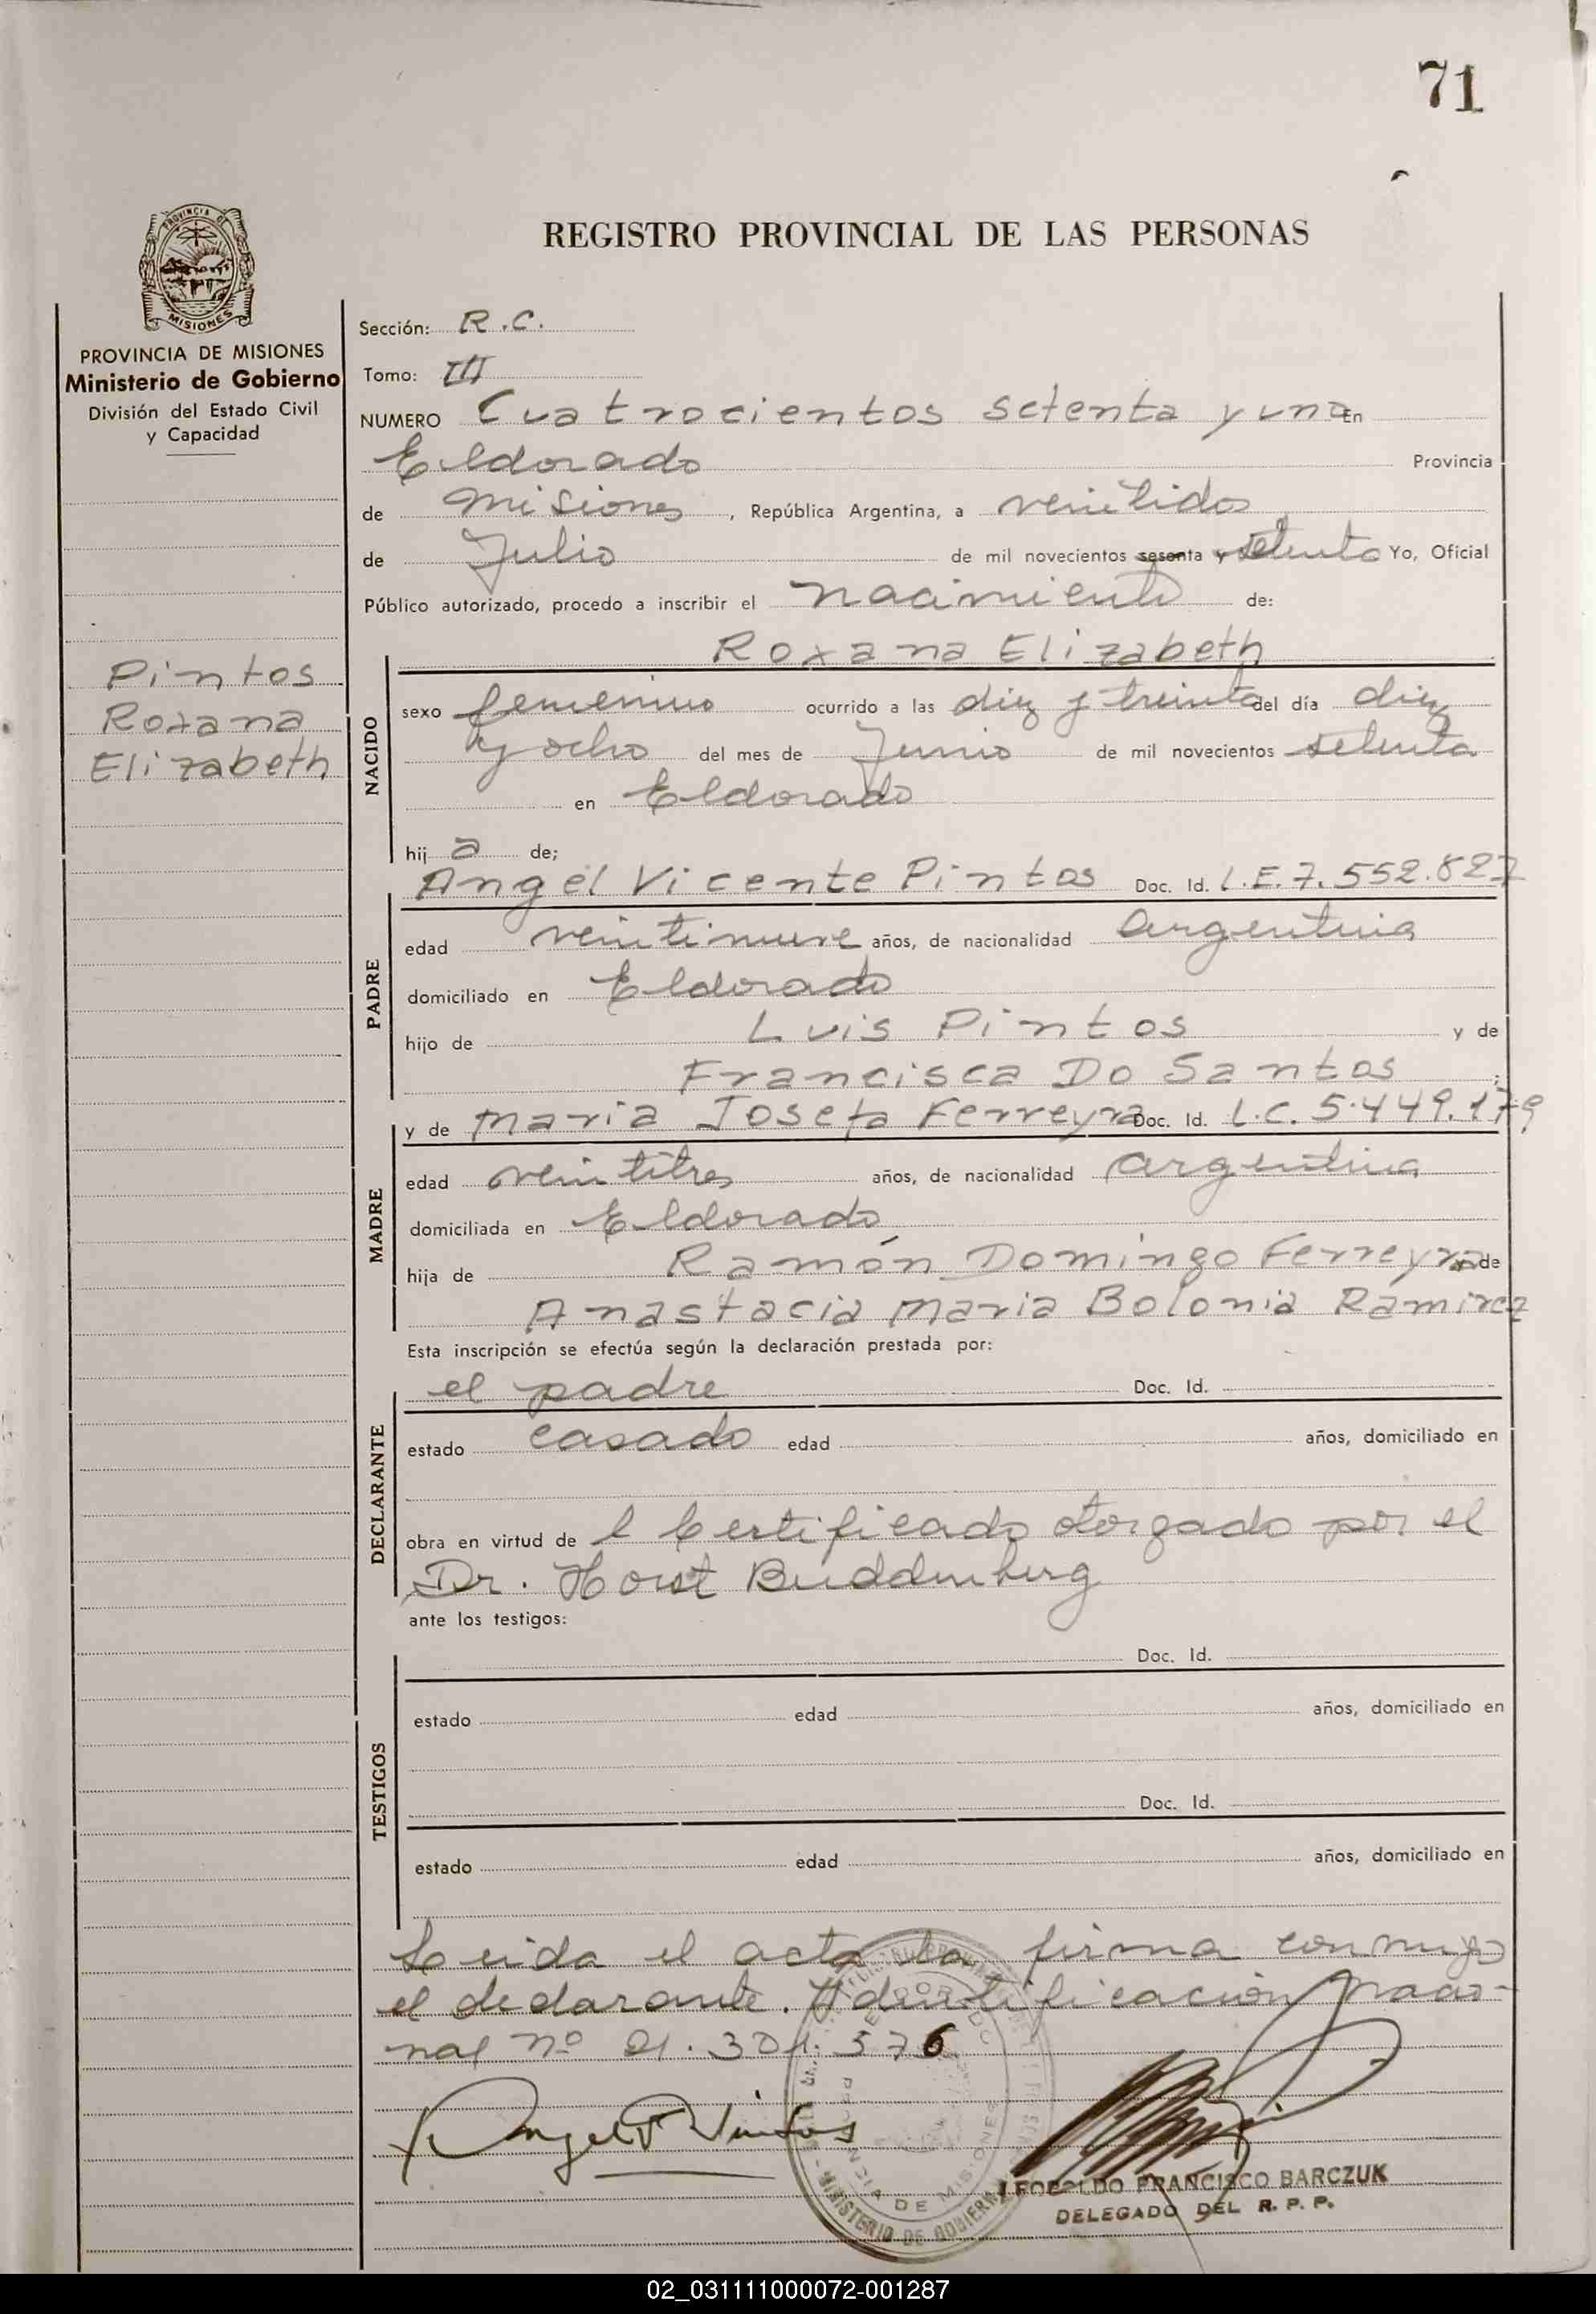 71
REGISTRO PROVINCIAL DE LAS PERSONAS
PROVINCIA DE MISIONES
Ministerio de Gobierno
División del Estado Civil
y Capacidad
Pintos
Roxana
Elizabeth
Sección: R.C.
Tomo: III
NUMERO Cuatrocientos setenta y uno En
Eldorado Provincia
de Misiones, República Argentina, a veintidos
de Julio de mil novecientos sesenta y setenta Yo, Oficial
Público autorizado, procedo a inscribir el nacimiento de:
Roxana Elizabeth
NACIDO
sexo femenino ocurrido a las diez y treinta del día diez
y ocho del mes de Junio de mil novecientos setenta
en Eldorado
hij a de;
Angel Vicente Pintos Doc. Id. L.E. 7.552.827
PADRE
edad veintinueve años, de nacionalidad argentina
domiciliado en Eldorado
hijo de Luis Pintos y de
Francisca Do Santos ;
y de Maria Josefa Ferreyra Doc. Id. L.C. 5.449.179
MADRE
edad veintitres años, de nacionalidad argentina
domiciliada en Eldorado
hija de Ramón Domingo Ferreyra y de
Anastacia Maria Bolonia Ramirez
Esta inscripción se efectúa según la declaración prestada por:
el padre Doc. Id.
DECLARANTE
estado casado edad años, domiciliado en
obra en virtud de l Certificado otorgado por el
Dr. Horst Buddenberg
ante los testigos:
Doc. Id.
TESTIGOS
estado edad años, domiciliado en
Doc. Id.
estado edad años, domiciliado en
Leida el acta la firma conmigo
el declarante. Identificación Nacio-
nal nº 21.301.576
Angel V Pintos
LEOPOLDO FRANCISCO BARCZUK
DELEGADO DEL R. P. P.
MINISTERIO DE GOBIERNO
PROVINCIA DE MISIONES
02_031111000072-001287